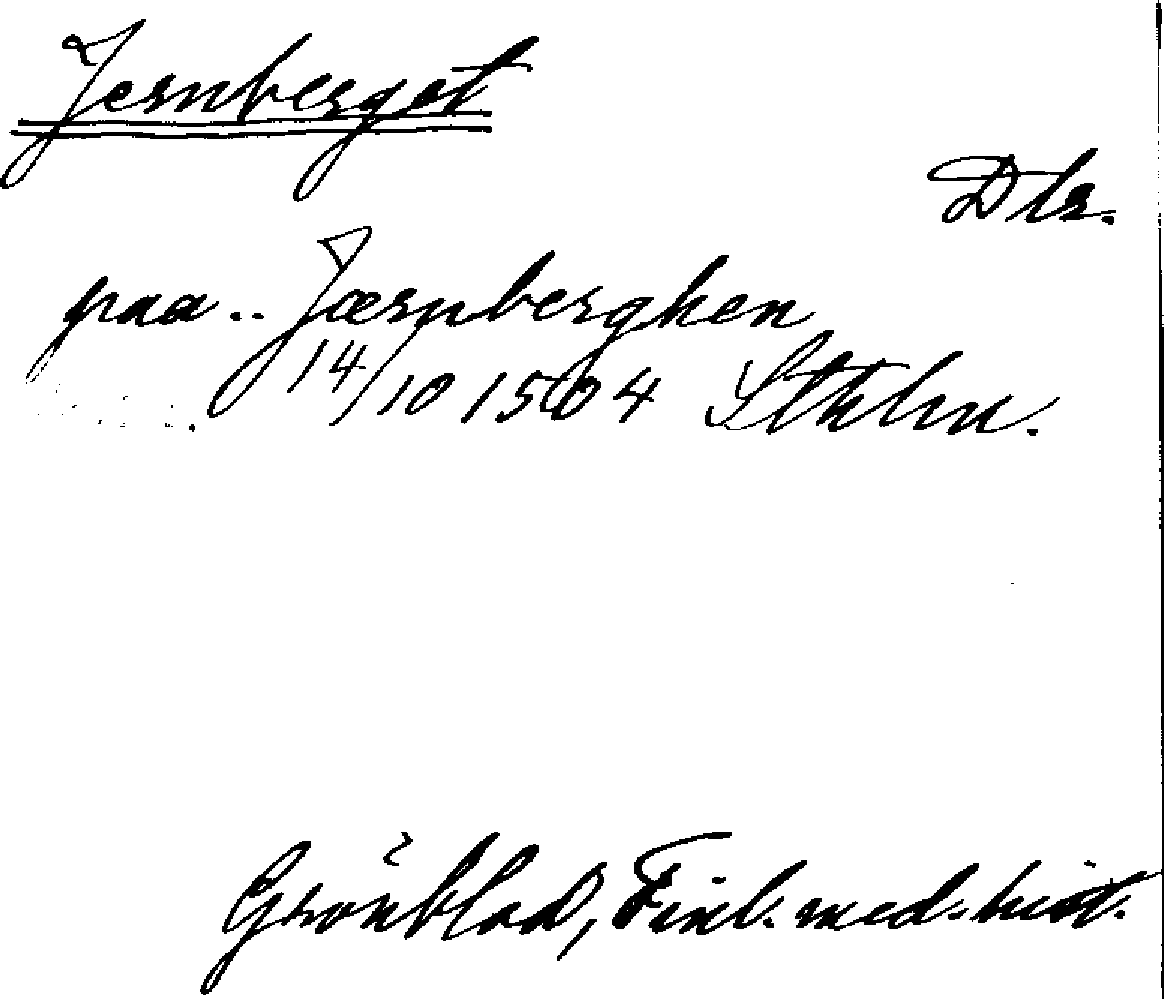 Jernberget
Dlr.
paa .. Jærnberghen
14/10 1504 Sthlm.
Grönblad, Finl. med. hist.